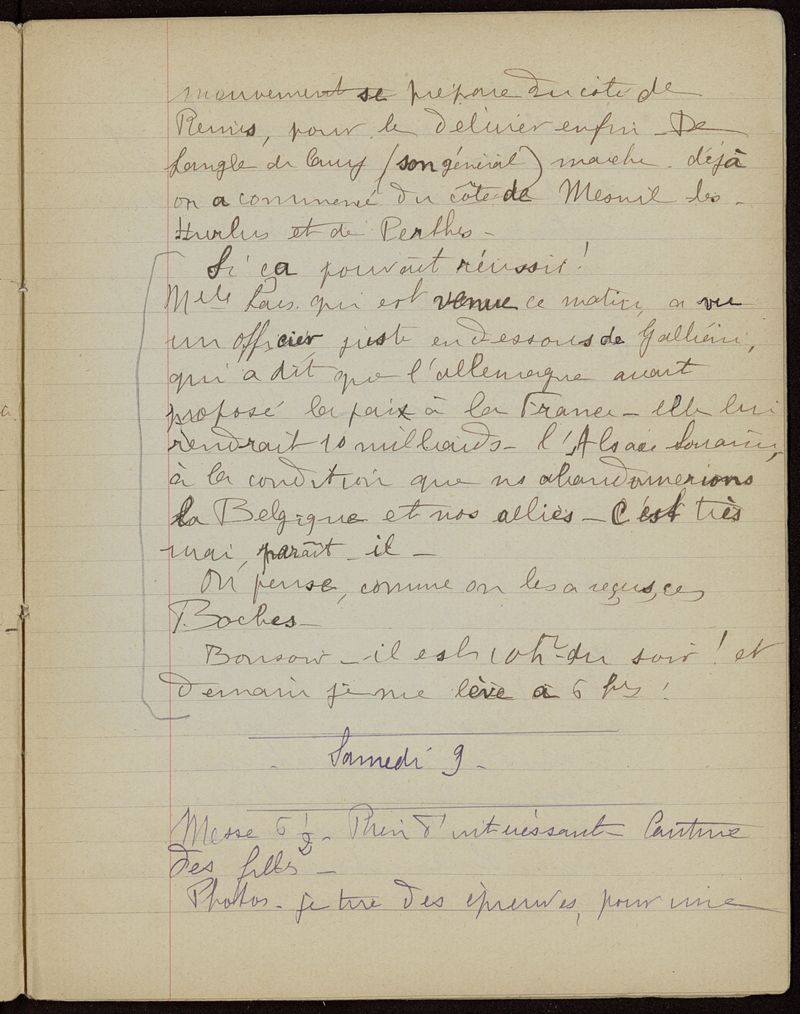 mouvement se prépare du côté de
Reims, pour le délivrer enfin - De
Langle de Cary (son général) marche. déjà
on a commencé du côté de Mesnil les -
Hurlus et de Perthes -
Si ça pouvait réussir !
Melle qui est venue ce matin, a vu
un officier, juste en dessous de Galliéni,
qui a dit que l'allemagne avait
proposé la paix à la France - elle lui
rendrait 10 milliards - l'Alsace Lorraine,
à la condition que ns abandonnerions
la Belgique et nos alliés - C'est très
vrai, paraît-il -
On pense, comme on les a reçus, ces
Boches -
Bonsoir - il est 10h - du soir ! et
demain je me lève à 6 hrs !
- Samedi 9 -
Messe 6 1/2 - Rien d'intéressant - Cantine
des filles -
Photos - je tire des épreuves, pour une